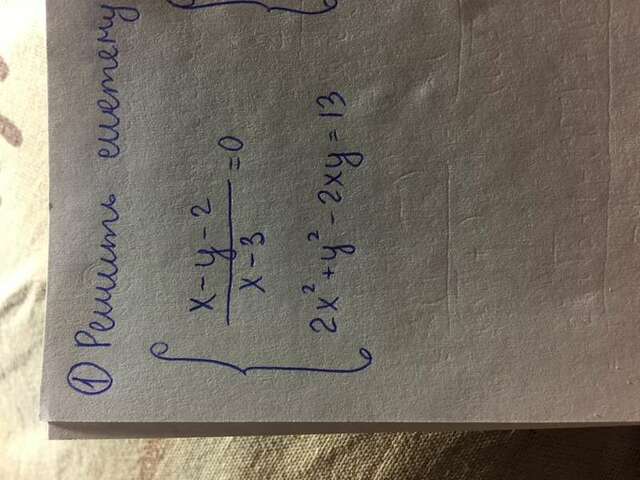 ① Решить систему
x - y - 2
x - 3
= 0
2x² + y² - 2xy = 13